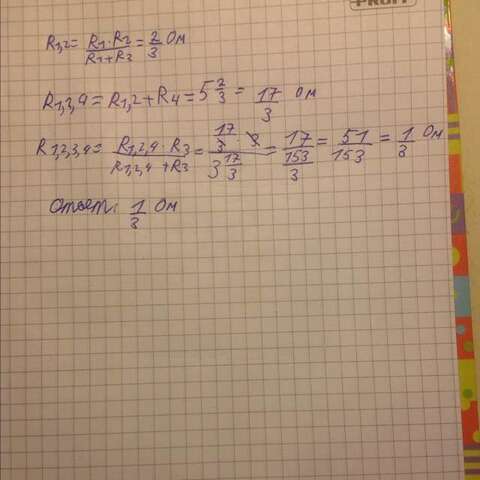 PROFF
R1,2 = R1·R2 / R1+R3 = 2/3 Ом
R1,3,4 = R1,2 + R4 = 5 2/3 = 17/3 Ом
R1,2,3,4 = R1,2,4 · R3 / R1,2,4 + R3 = 17/3 · 3 / 3 17/3 = 17 / 153/3 = 51/153 = 1/3 Ом
Ответ: 1/3 Ом